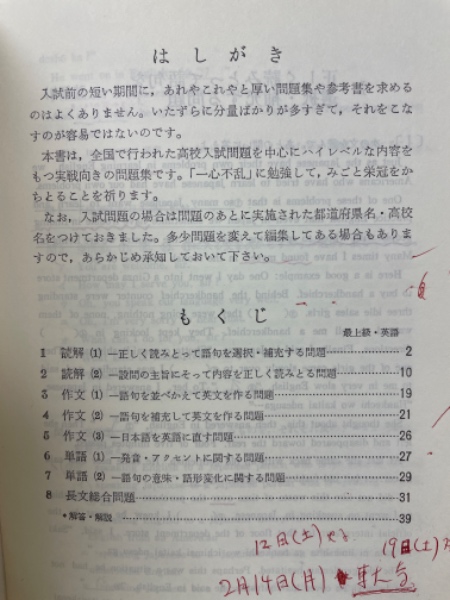 はしがき
入試前の短い期間に，あれやこれやと厚い問題集や参考書を求める
のはよくありません。いたずらに分量ばかりが多すぎて，それをこな
すのが容易ではないのです。
本書は，全国で行われた高校入試問題を中心にハイレベルな内容を
もつ実戦向きの問題集です。「一心不乱」に勉強して，みごと栄冠をか
ちとることを祈ります。
なお，入試問題の場合は問題のあとに実施された都道府県名・高校
名をつけておきました。多少問題を変えて編集してある場合もありま
すので，あらかじめ承知しておいて下さい。
もくじ
最上級・英語
1 読解 (1) ―正しく読みとって語句を選択・補充する問題 2
2 読解 (2) ―設問の主旨にそって内容を正しく読みとる問題 10
3 作文 (1) ―語句を並べかえて英文を作る問題 18
4 作文 (2) ―語句を補充して英文を作る問題 21
5 作文 (3) ―日本語を英語に直す問題 26
6 単語 (1) ―発音・アクセントに関する問題 27
7 単語 (2) ―語句の意味・語形変化に関する問題 29
8 長文総合問題 31
*解答・解説 39
12日(土)
19日(土)
2月14日(月)